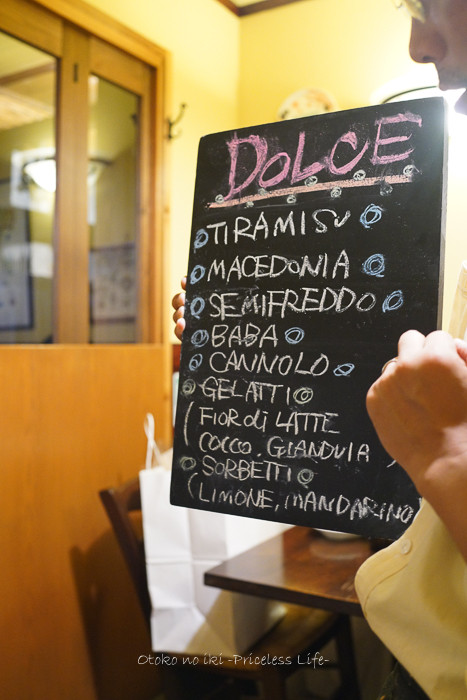 DOLCE
TIRAMISU
MACEDONIA
SEMIFREDDO
BABA
CANNOLO
GELATTI
(FIOR di LATTE
COCCO. GIANDUIA)
SORBETTI
(LIMONE, MANDARINO
Otoko no iki -Priceless Life-